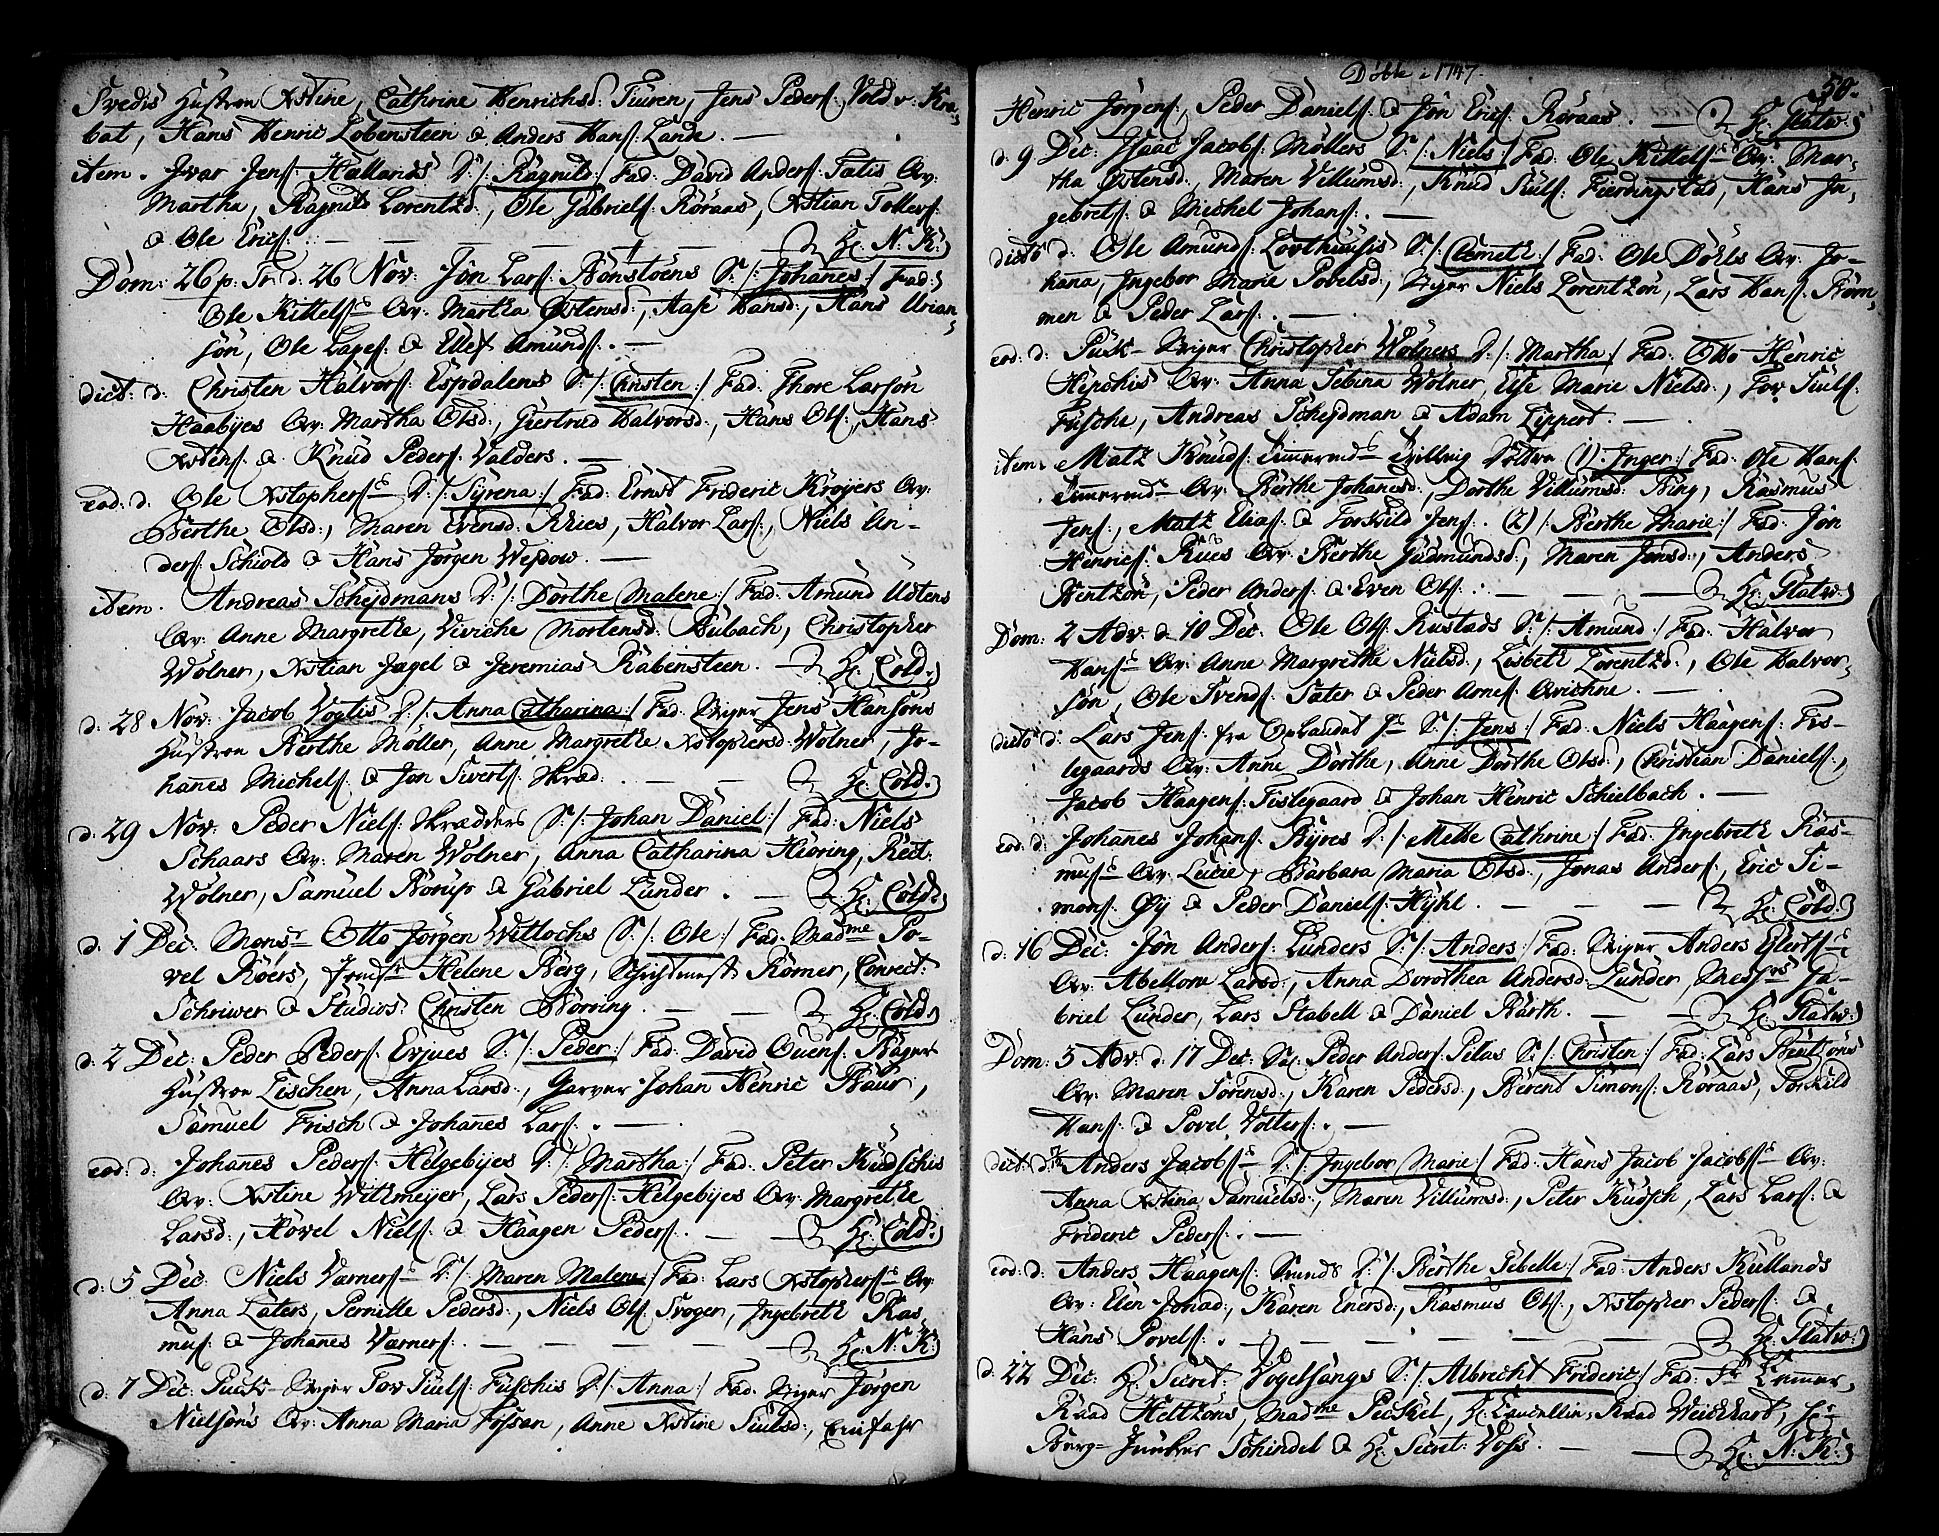 Svedis Hustroe Xstine, Cathrine Henrichsd: Tiuren, Jens Peders: Vold v: Kra-
bat, Hans Henric Löbensteen & Anders Hans: Lande. —
item. Ivar Jens: Hallands D: /: Ragnild :/ Fad: David Anders: Qv:
Martha, Ragnild Lorentzd:, Ole Gabriels: Röraas, Xstian Tollefs:
& Ole Erics: . — — — — H: N: K:
Dom: 26 p: Tr: d: 26 Nov: Jön Lars: Rönstöens S: /: Johanes :/ Fad:
Ole Kittels: Qv: Martha Østensd:, Aase Hansd:, Hans Urian-
sön, Ole Lages: & Ellef Amunds: . —
dict: d: Christen Halvors: Espdalens S: /: Christen :/ Fad: Thore Larsön
Haabyes Qv: Martha Olsd:, Giertrud Halvorsd:, Hans Ols:, Hans
Xstens: & Knud Peders: Valders. —
eod: d: Ole Xstophers: D: /: Syrena :/ Fad: Ernst Frideric Kröyers Qv:
Berthe Olsd:, Maren Evensd: Kries, Halvor Lars:, Niels An-
ders: Schiold & Hans Jörgen Weydow. —
item. Andreas Schejdmans D: /: Dorthe Malene :/ Fad: Amund Ustens
Qv: Anne Margrethe, Viviche Mortensd: Bubach, Christopher
Wölner, Xstian Jagel & Jeremias Rabensteen. — H: Cold:
d: 28 Nov: Jacob Voglis D: /: Anna Catharina :/ Fad: Stiger Jens Hansöns
Hustroe Berthe Möller, Anne Margrethe Xstophersd: Wölner, Jo-
hannes Michels: & Jon Siverts: Skræd: . — — H: Cold:
d: 29 Nov: Peder Niels: Skrædders S: /: Johan Daniel :/ Fad: Niels
Schaars Qv: Maren Wolner, Anna Catharina Hiöring, Rect:
Wölner, Samuel Borup & Gabriel Lunder. — H: Cold:
d: 1 Dec: Monsr Otto Jörgen Witlochs S: /: Ole :/ Fad: Madme Po-
vel Röers, Helene Berg, Schichtmest: Römer, Conrect:
Schriwer & Studios: Christen Borring. — — H: Cold:
d: 2 Dec: Peder Peders: Evjues S: /: Peder :/ Fad: David Ouens: Bager
Hustroe Lischen, Anna Larsd:, Garver Johan Henric Baur,
Samuel Frisch & Johanes Lars: . —
eod: d: Johanes Peders: Helgebyes D: /: Martha :/ Fad: Peter Kudschis
Qv: Xstine Witzmeyer, Lars Peders: Helgebyes Qv: Margrethe
Larsd:, Hövel Niels: & Haagen Peders: . — — H: Cold:
d: 5 Dec: Niels Værners: D: /: Maren Malene :/ Fad: Lars Xstophers: Qv:
Anna Laters, Pernille Pedersd:, Niels Ols: Svoger, Ingebreth Ras
mus: & Johanes Værners: . — — — — H: N: K:
d: 7 Dec: Puck-Stiger Tov Siuls: Fuschis D: /: Anna :/ Fad: Stiger Jörgen
Nielsöns Qv: Anna Maria Fossan, Anne Xstine Siulsd:, Einfahr
Döbte 1747. 50.
Henric Jörgens:, Peder Daniels: & Jön Erics: Röraas. — H: Statw:
d: 9 Dec: Isaac Jacobs: Möllers S: /: Niels :/ Fad: Ole Kittels: Qv: Mar-
tha Østensd:, Maren Villumsd:, Knud Siuls: Fierdingstad, Hans In-
gebrets: & Michel Johans: . —
dicto d: Ole Amunds: Lovthuusis S: /: Clemetz :/ Fad: Ole Döhls Qv: Jo-
hana, Ingebor Marie Povelsd:, Stiger Niels Lorentzön, Lars Hans: Röm-
men & Peder Lars: . —
eod: d: Puck-Stiger Christopher Wölners D: /: Martha :/ Fad: Otto Henric
Hipschis Qv: Anna Sebina Wölner, Else Marie Nielsd:, Tov Siuls:
Fusche, Andreas Schejdman & Adam Lippert. —
item. Matz Knuds: Timermd: Tvilling Döttre (1) /: Inger :/ Fad: Ole Hans:
Timermd: Qv: Berthe Johanesd:, Dorthe Villumsd: Bing, Rasmus
Jens:, Matz Elias: & Torkild Jens: . (2) /: Berthe Marie :/ Fad: Jön
Henrics: Kues Qv: Berthe Gudmundsd:, Maren Jensd:, Anders
Bentzön, Peder Anders: & Even Ols: . — — — H: Statw:
Dom: 2 Adv: d: 10 Dec: Ole Ols: Rustads S: /: Amund :/ Fad: Halvor
Hans: Qv: Anne Margrethe Nielsd:, Lisbeth Lorentzd:, Ole Halvor-
sön, Ole Svends: Sater & Peder Arnes: Qvichne. —
dicto d: Lars Jens: fra Oplandet S: /: Jens :/ Fad: Niels Haagens: Fis-
legaards Qv: Anne Dorthe, Anne Dorthe Olsd:, Christian Daniels:,
Jacob Haagens: Fislegaard & Johan Henric Schielbach. —
eod: d: Johannes Johans: Byres D: /: Mette Cathrine :/ Fad: Ingebreth Ras-
mus: Qv: Lucie, Barbara Maria Olsd:, Jonas Anders:, Eric Si-
mons: Øy & Peder Daniels: Hyhl. — — — H: Cold:
d: 16 Dec: Jön Anders: Lunders S: /: Anders :/ Fad: Stiger Anders Eylerts:
Qv: Abellone Larsd:, Anna Dorothea Andersd: Lunder, Messrs Ga-
briel Lunder, Lars Stabell & Daniel Barth. — — H: Statw:
Dom: 3 Adv: d: 17 Dec: Sl: Peder Anders: Pilas S: /: Christen :/ Fad: Lars Bentzöns
Qv: Maren Sörensd:, Karen Pedersd:, Berent Simons: Röraas, Torkild
Hans: & Povel Volters: . —
dict: d: Anders Jacobs: D: /: Ingebor Marie :/ Fad: Hans Jacob Jacobs: Qv:
Anna Xstina Samuelsd:, Maren Villumsd:, Peter Kudsch, Lars Lars: &
Frideric Peders: . —
eod: d: Anders Haagens: Strunds D: /: Berthe Sebelle :/ Fad: Anders Kullands
Qv: Elen Jonæd:, Karen Enersd:, Rasmus Ols:, Xstopher Peders: &
Hans Povels: . — — — — — H: Statw:
d: 22 Dec: H: Secret: Vogelsangs S: /: Albrecht Frideric :/ Fad: Fr: Cammer-
Raad Heltzöns, Madme Peckel, H: Cancellie-Raad Weichhart,
Berg-Juncker Schindel & H: Secret: Voss. — — H: N: K: